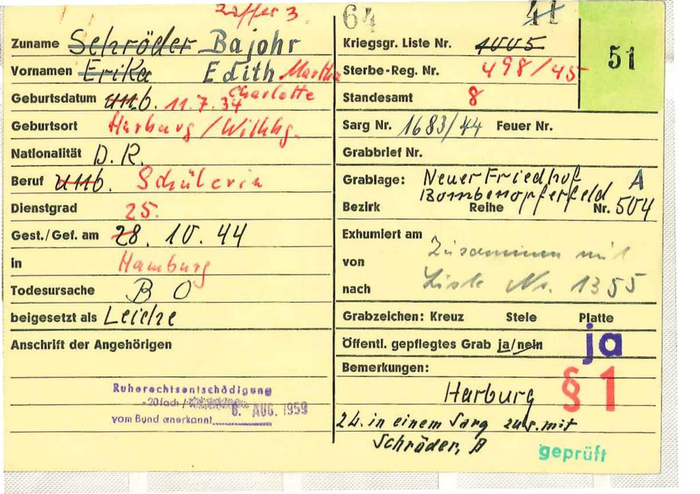 Ziffer 3
64 41
51
Zuname Schröder Bajohr
Vornamen Erika Edith Martha
Charlotte
Geburtsdatum unb. 11.7.34
Geburtsort Harburg/Wilhbg.
Nationalität D.R.
Beruf unb. Schülerin
Dienstgrad
25.
Gest./Gef. am 28. 10. 44
in Hamburg
Todesursache B O
beigesetzt als Leiche
Anschrift der Angehörigen
Ruherechtsentschädigung
-20fach/
8. AUG. 1959
vom Bund anerkannt
Kriegsgr. Liste Nr. 1005
Sterbe-Reg. Nr. 498/45
Standesamt 8
Sarg Nr. 1683/44 Feuer Nr.
Grabbrief Nr.
Grablage: Neuer Friedhof A
Bombenopferfeld
Bezirk Reihe Nr. 504
Exhumiert am
Zusammen mit
von
Liste Nr. 1355
nach
Grabzeichen: Kreuz Stele Platte
Öffentl. gepflegtes Grab ja/nein ja
Bemerkungen:
§ 1
Harburg
2 L. in einem Sarg zus. mit
Schröder, A
geprüft